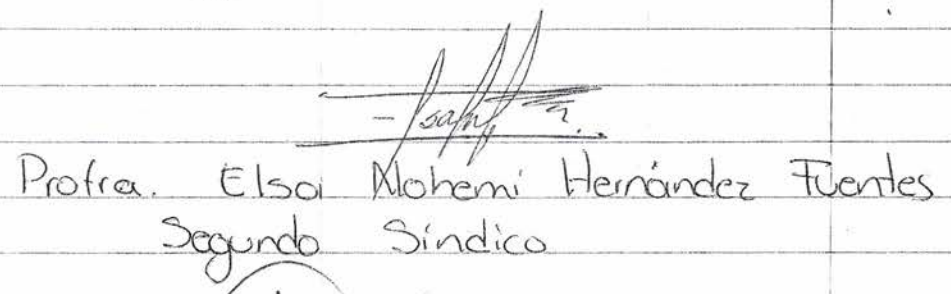 Profra. Elsa Nohemi Hernández Fuentes
Segundo Síndico